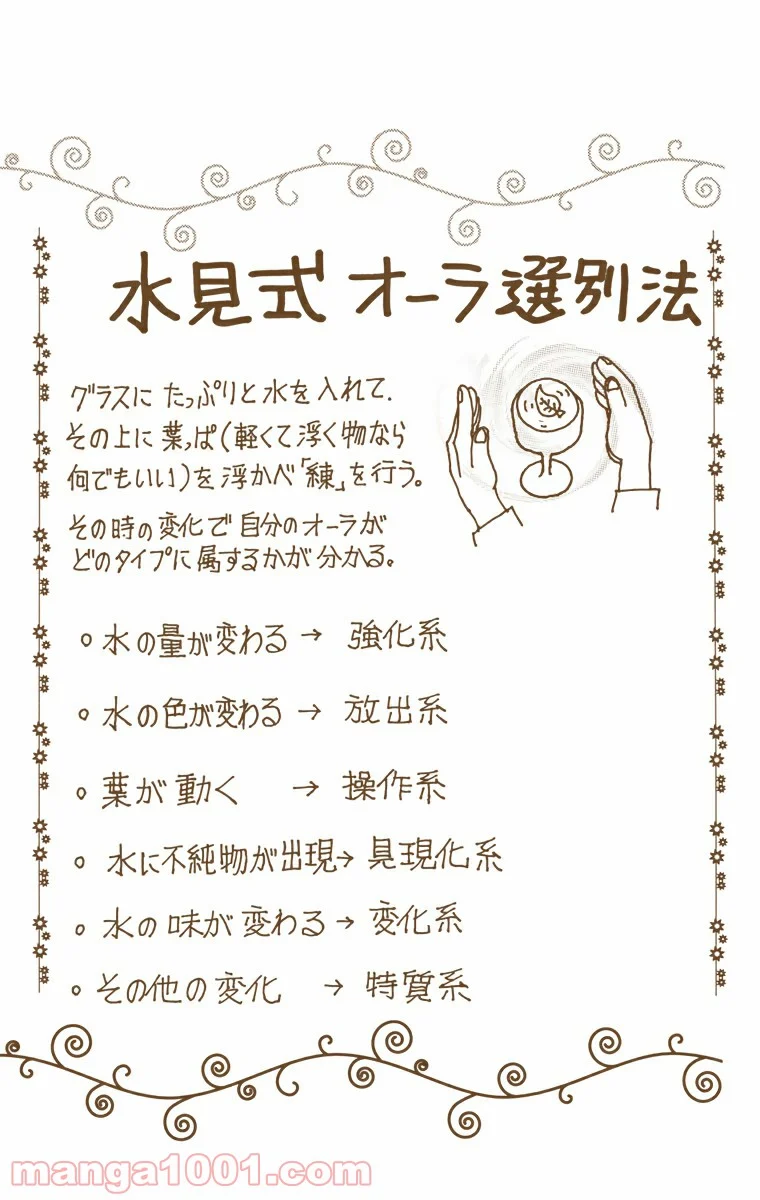 水見式 オーラ選別法
グラスに たっぷりと 水を 入れて.
その上に 葉っぱ(軽くて 浮く物なら
何でもいい)を 浮かべ「練」を 行う。
その時の 変化で 自分のオーラが
どのタイプに 属するかが 分かる。
○ 水の量が変わる → 強化系
○ 水の色が変わる → 放出系
○ 葉が動く → 操作系
○ 水に不純物が出現→ 具現化系
○ 水の味が変わる → 変化系
○ その他の変化 → 特質系
manga1001.com